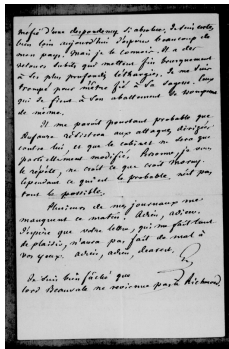 méfié d'une despondency si absolue. Je suis certes,
bien loin aujourd'hui d'espérer beaucoup de
mon pays. Mais je le connais. Il a des
retours subits qui mettent fin brusquement
à ses plus profondes léthargies. Je me suis
trompé pour m'être fié à sa sagesse. Ceux
qui se fient à son abattement se trompent
de même.
Il me paraît pourtant probable que
Dufaure résistera aux attaques dirigées
contre lui, et que le cabinet ne sera que
partiellement modifié. Personne, je vous
le répète, ne croit ce que croit
Cependant ce qui est le probable, n'est pas
tout le possible.
Plusieurs de mes journaux me
manquent ce matin. Adieu, adieu.
J'espère que votre lettre, qui me fait tant
de plaisir, n'aura pas fait de mal à
vos yeux. Adieu, adieu, dearest.
Je suis bien fâché que
lord Beauvale ne revienne pas à Richmond.